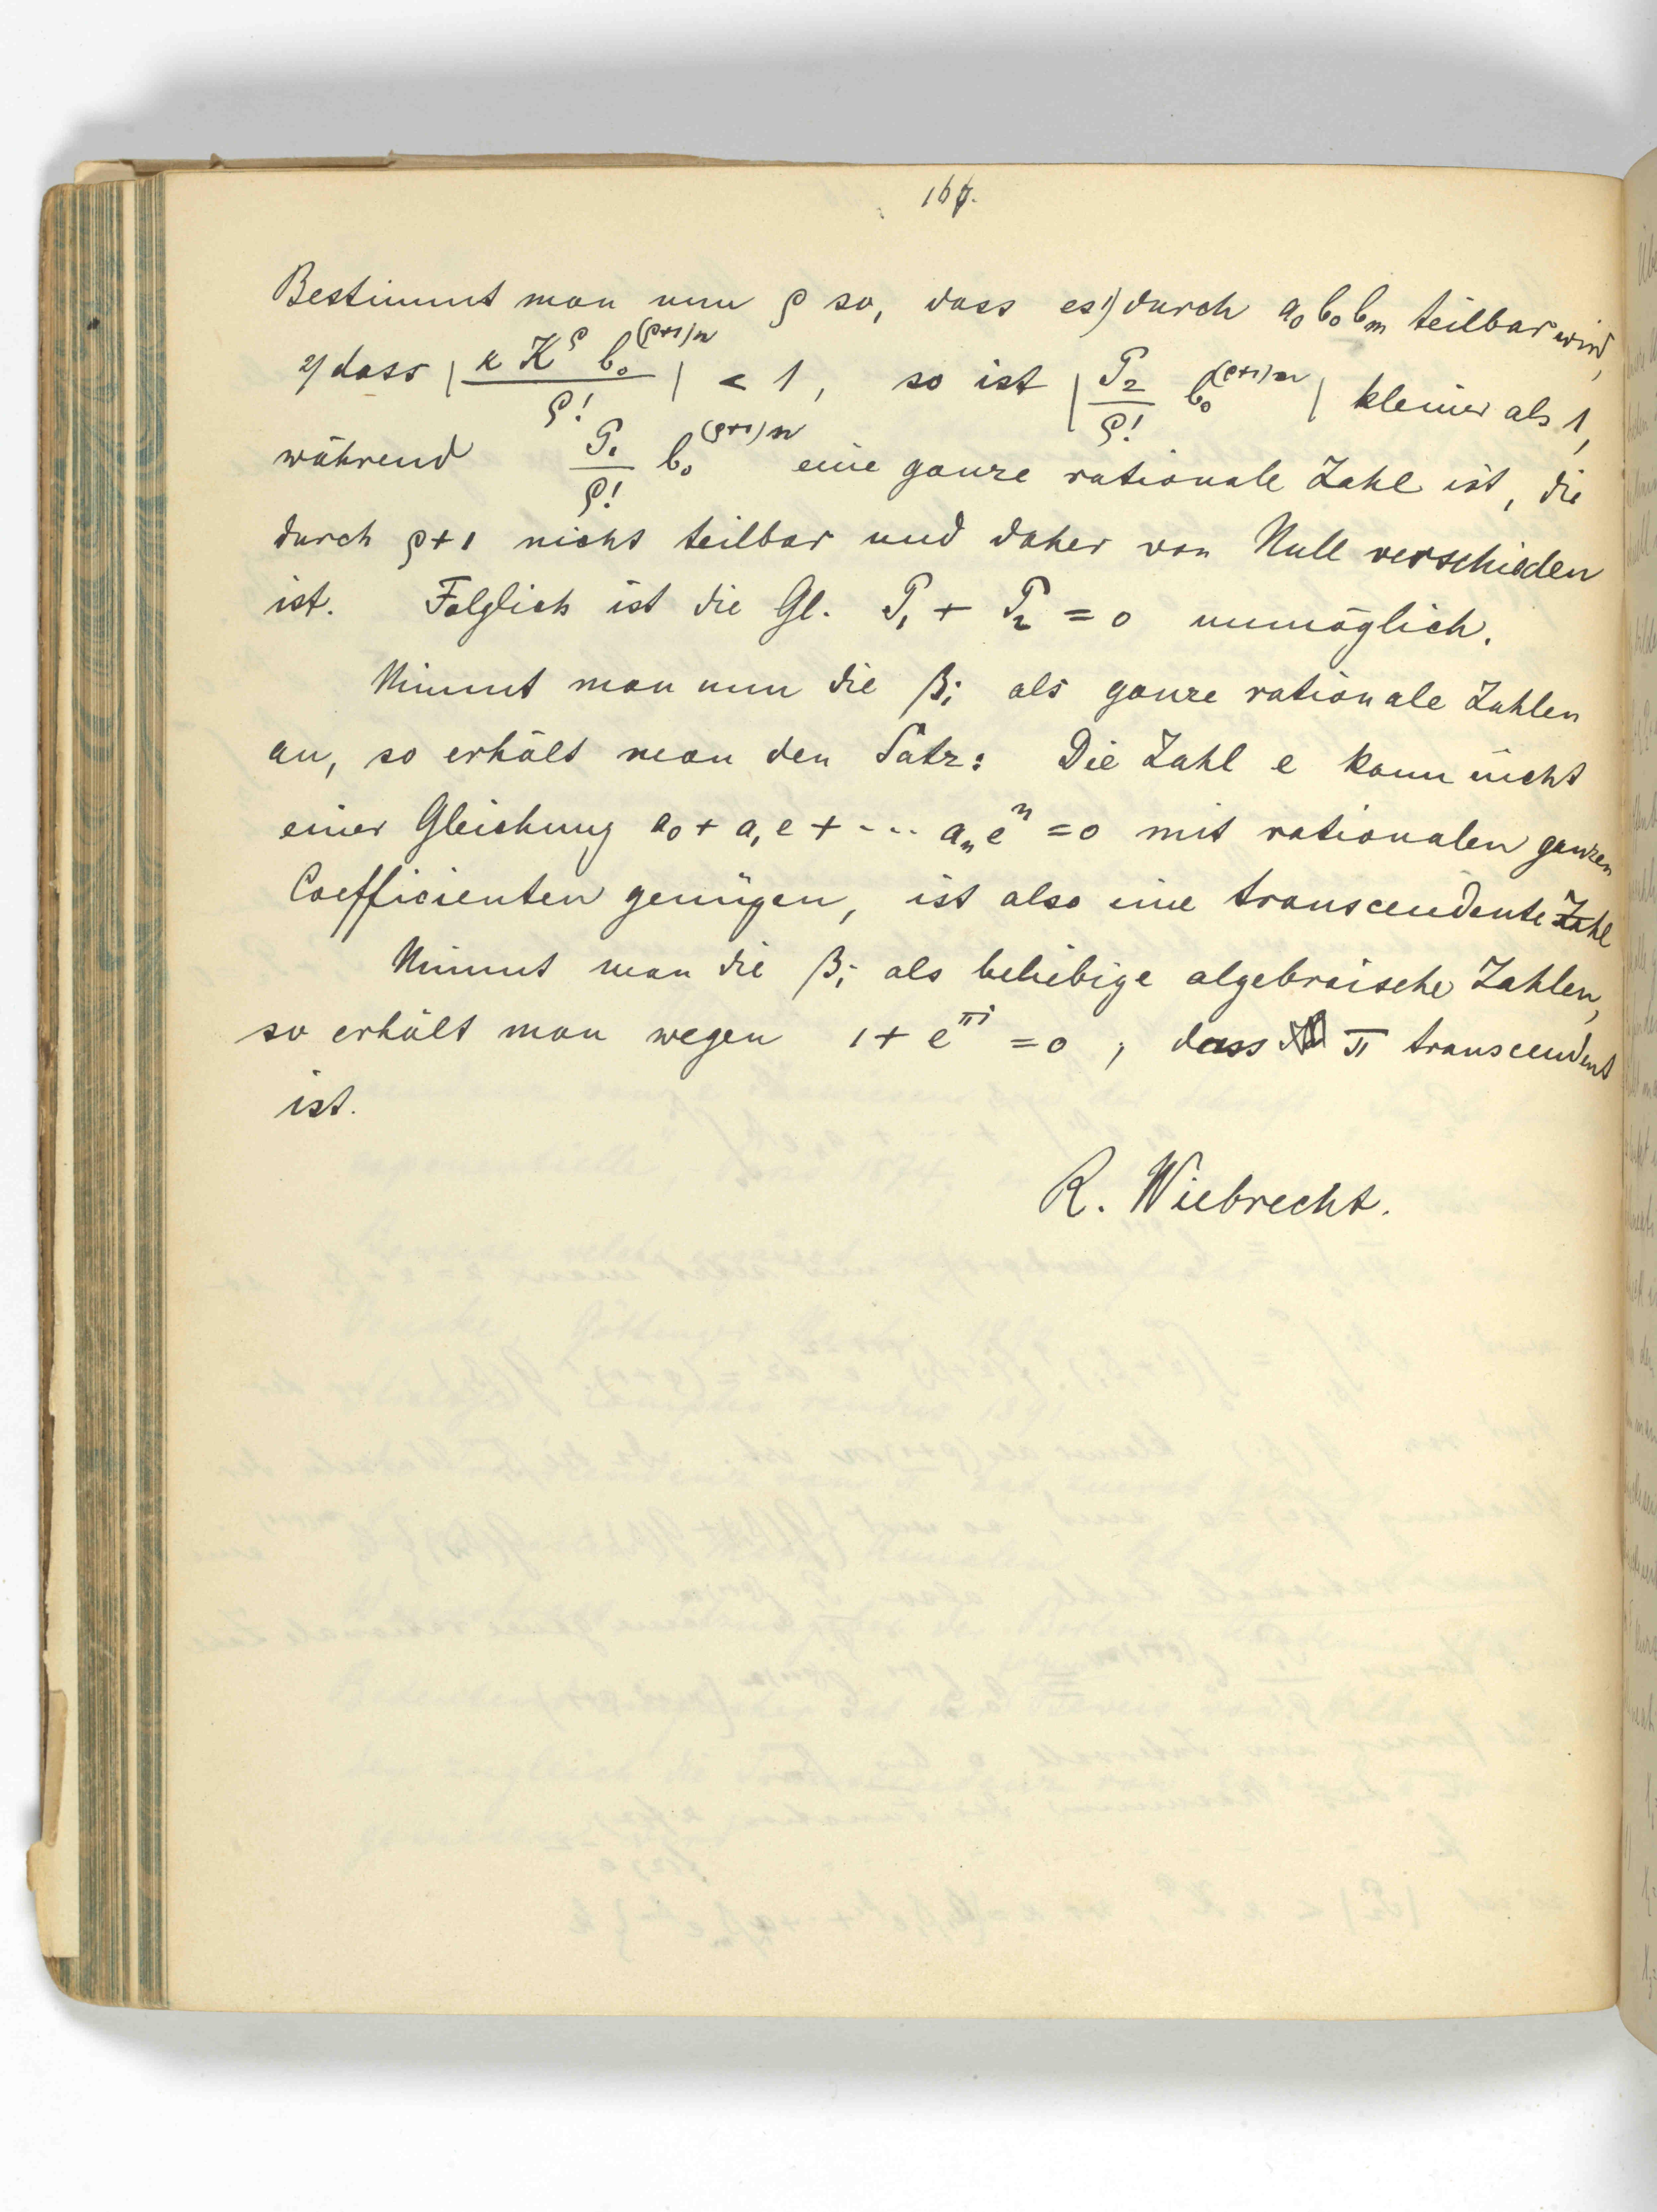 167.
Bestimmt man nun ρ so, dass es 1) durch a₀ b₀ bₘ teilbar wird,
2) dass | κ K^ρ b₀^{(ρ+1)n} / ρ! | < 1, so ist | P₂ / ρ! b₀^{(ρ+1)n} | kleiner als 1,
während P₁ / ρ! b₀^{(ρ+1)n} eine ganze rationale Zahl ist, die
durch ρ+1 nicht teilbar und daher von Null verschieden
ist. Folglich ist die Gl. P₁ + P₂ = 0 unmöglich.
Nimmt man nun die βᵢ als ganze rationale Zahlen
an, so erhält man den Satz: Die Zahl e kann nicht
einer Gleichung a₀ + a₁e + ... aₙeⁿ = 0 mit rationalen ganzen
Coefficienten genügen, ist also eine transcendente Zahl
Nimmt man die βᵢ als beliebige algebraische Zahlen,
so erhält man wegen 1 + e^{πi} = 0, dass π transcendent
ist.
R. Wiebrecht.